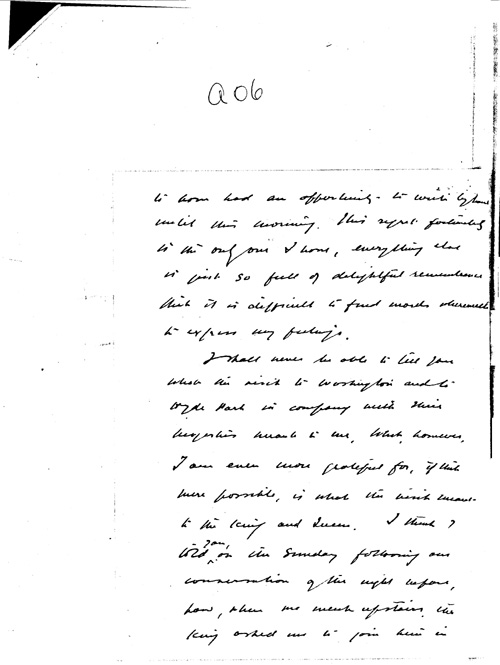 a06
to have had an opportunity to write before
until this morning. This regret fortunately
is the only one I have, everything else
is just so full of delightful remembrance
that it is difficult to find words wherewith
to express my feelings.
I shall never be able to tell you
what the visit to Washington and to
Hyde Park in company with Their
Majesties meant to me. What, however,
I am even more grateful for, if that
were possible, is what the visit meant
to the King and Queen. I think I
told you, on the Sunday following our
conversation of the night before,
how, when we went upstairs, the
King asked me to join him in